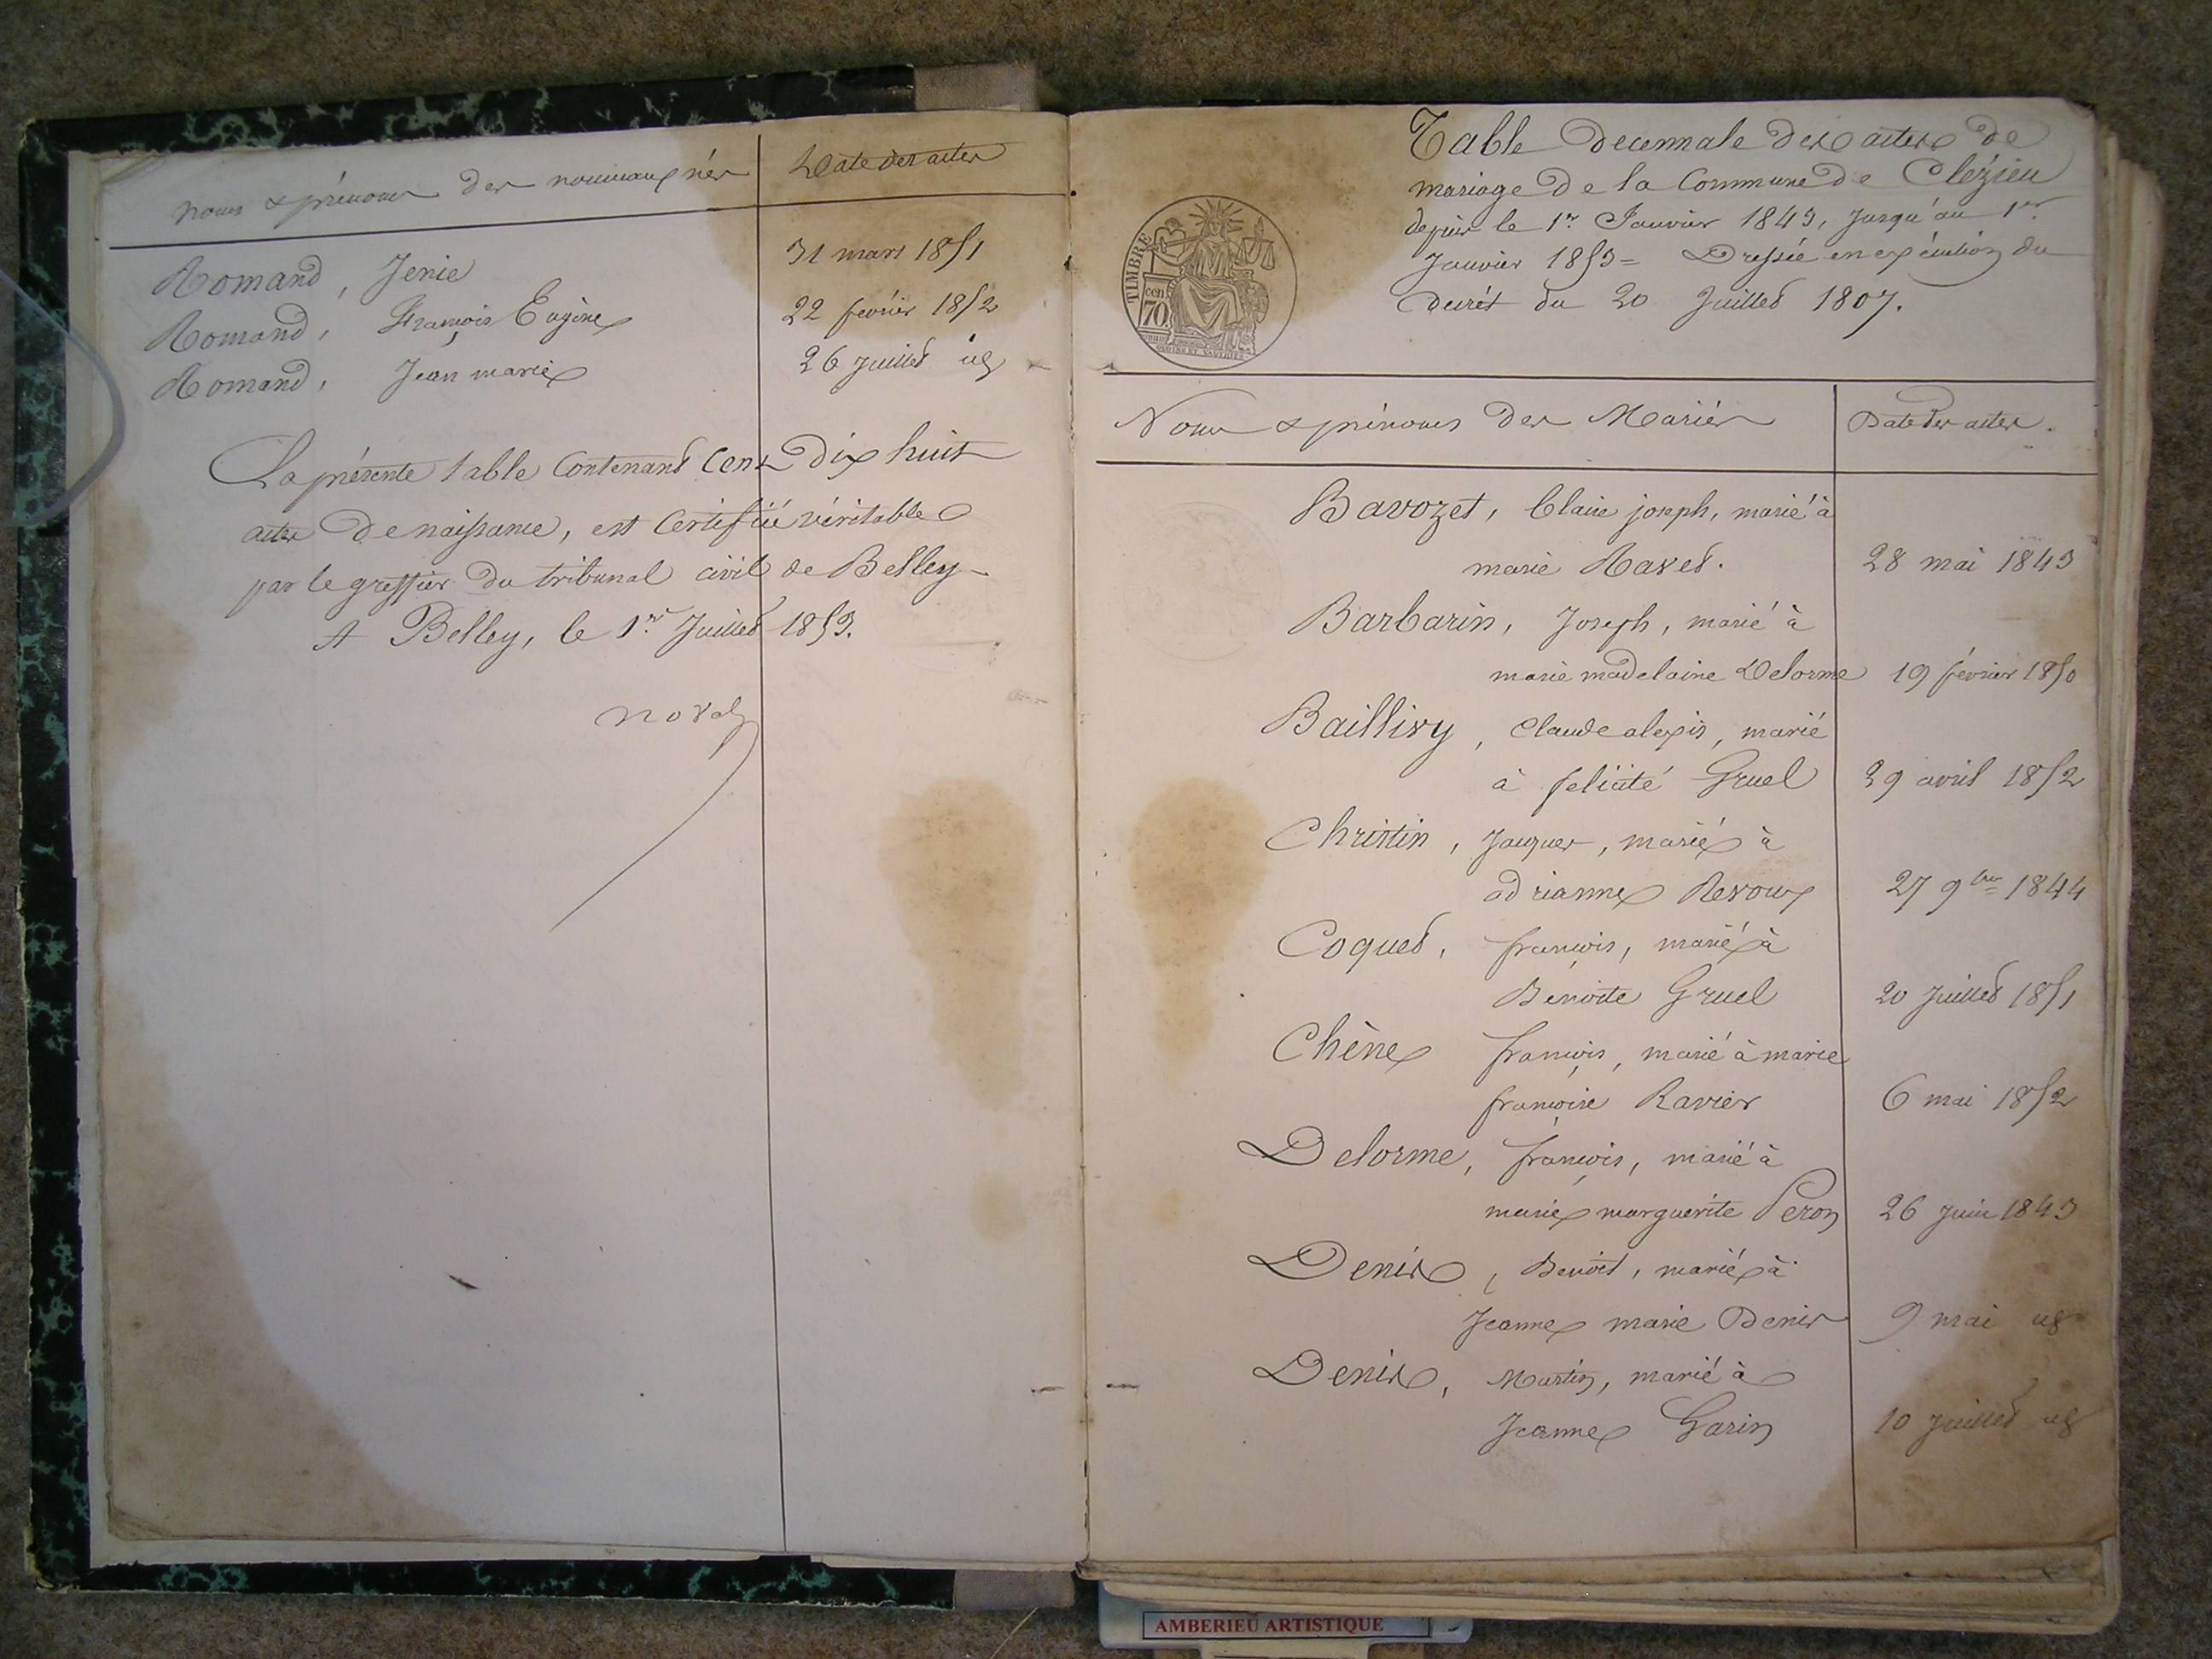 noms & prénoms des nouveaux nés
Date des actes
Romand, Jenie 31 mars 1851
Romand, François Eugène 22 février 1852
Romand, Jean marie 26 Juillet id
La présente table Contenant Cent Dix huit
actes De naissance, est Certifiée véritable
par le greffier Du tribunal civil de Belley
A Belley, le 1er Juillet 1853.
Table Decennale Des actes De
mariage De la Commune De Clézieu
depuis le 1er Janvier 1843, Jusqu'au 1er
Janvier 1853 = Dressée en exécution du
Decrét du 20 Juillet 1807.
TIMBRE
cen
70
Noms & prénoms Des Mariés
Date Des actes.
Bavozet, Claire joseph, marié à
marie Ravet. 28 mai 1843
Barbarin, Joseph, marié à
marie madelaine Delorme 19 février 1850
Baillivy, Claude alexis, marié
à felicité Gruel 29 avril 1852
Christin, Jacques, marié à
adrianne Revoux 27 9bre 1844
Coquet, françois, marié à
Benoite Gruel 20 Juillet 1851
Chêne françois, marié à marie
françoise Ravier 6 mai 1852
Delorme, françois, marié à
marie marguerite Peron 26 Juin 1843
Denis, Benoit, marié à
Jeanne marie Denis 9 mai id
Denis, Martin, marié à
Jeanne Garin 10 Juillet id
AMBERIEU ARTISTIQUE